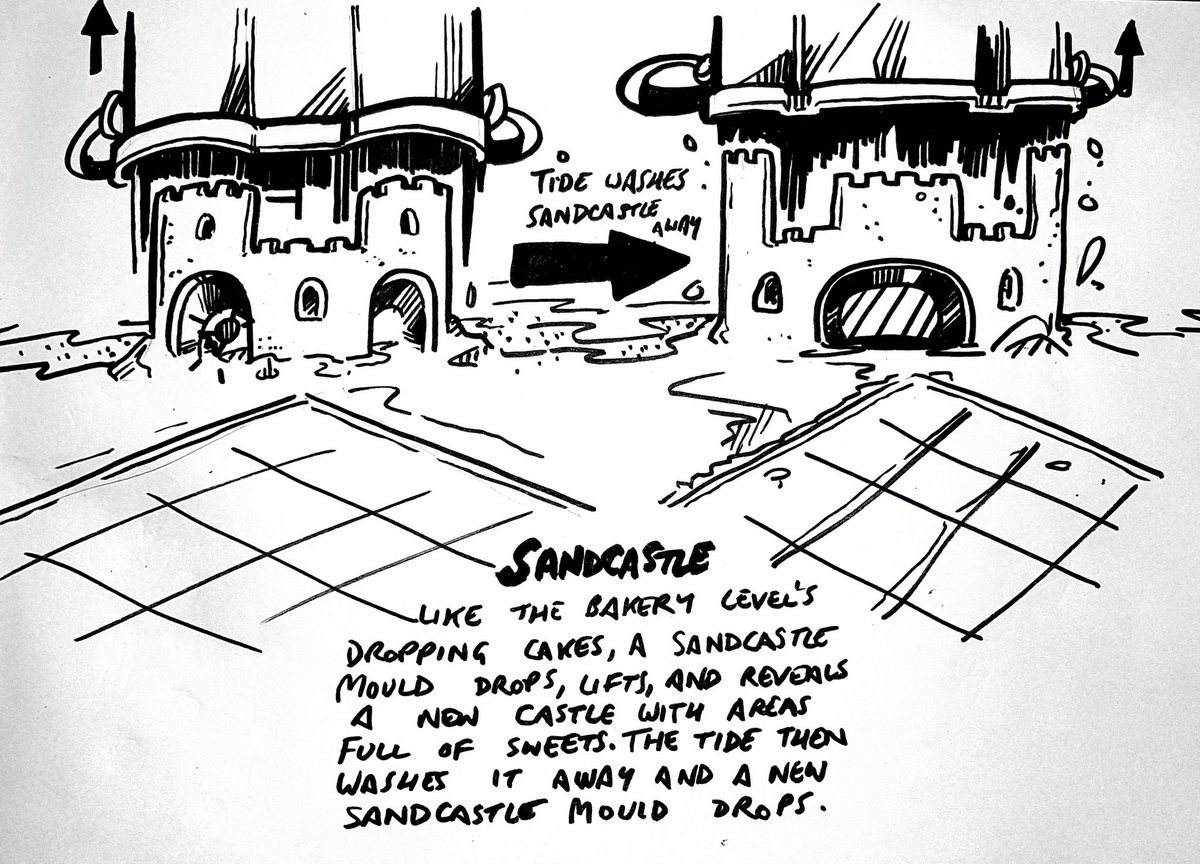 TIDE WASHES
SANDCASTLE
AWAY
SANDCASTLE
LIKE THE BAKERY LEVEL'S
DROPPING CAKES, A SANDCASTLE
MOULD DROPS, LIFTS, AND REVEALS
A NEW CASTLE WITH AREAS
FULL OF SWEETS. THE TIDE THEN
WASHES IT AWAY AND A NEW
SANDCASTLE MOULD DROPS.